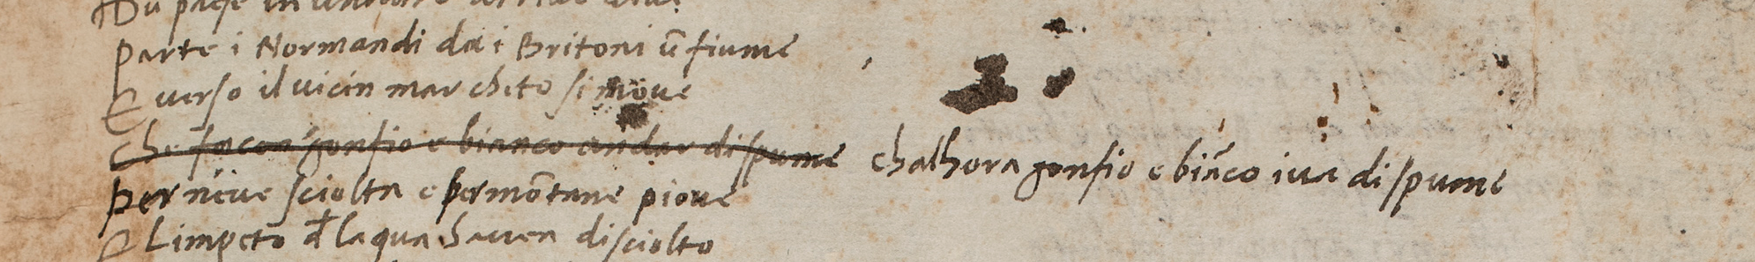 Parte i Normandi da i Britoni ũ fiume
E verso il vicin mar cheto si move
che facea gonfio e bianco andar di spume chalhora gonfio e biãco iva di spume
per neve sciolta e per mõtane piove
E Limpeto d laqua havea disciolto